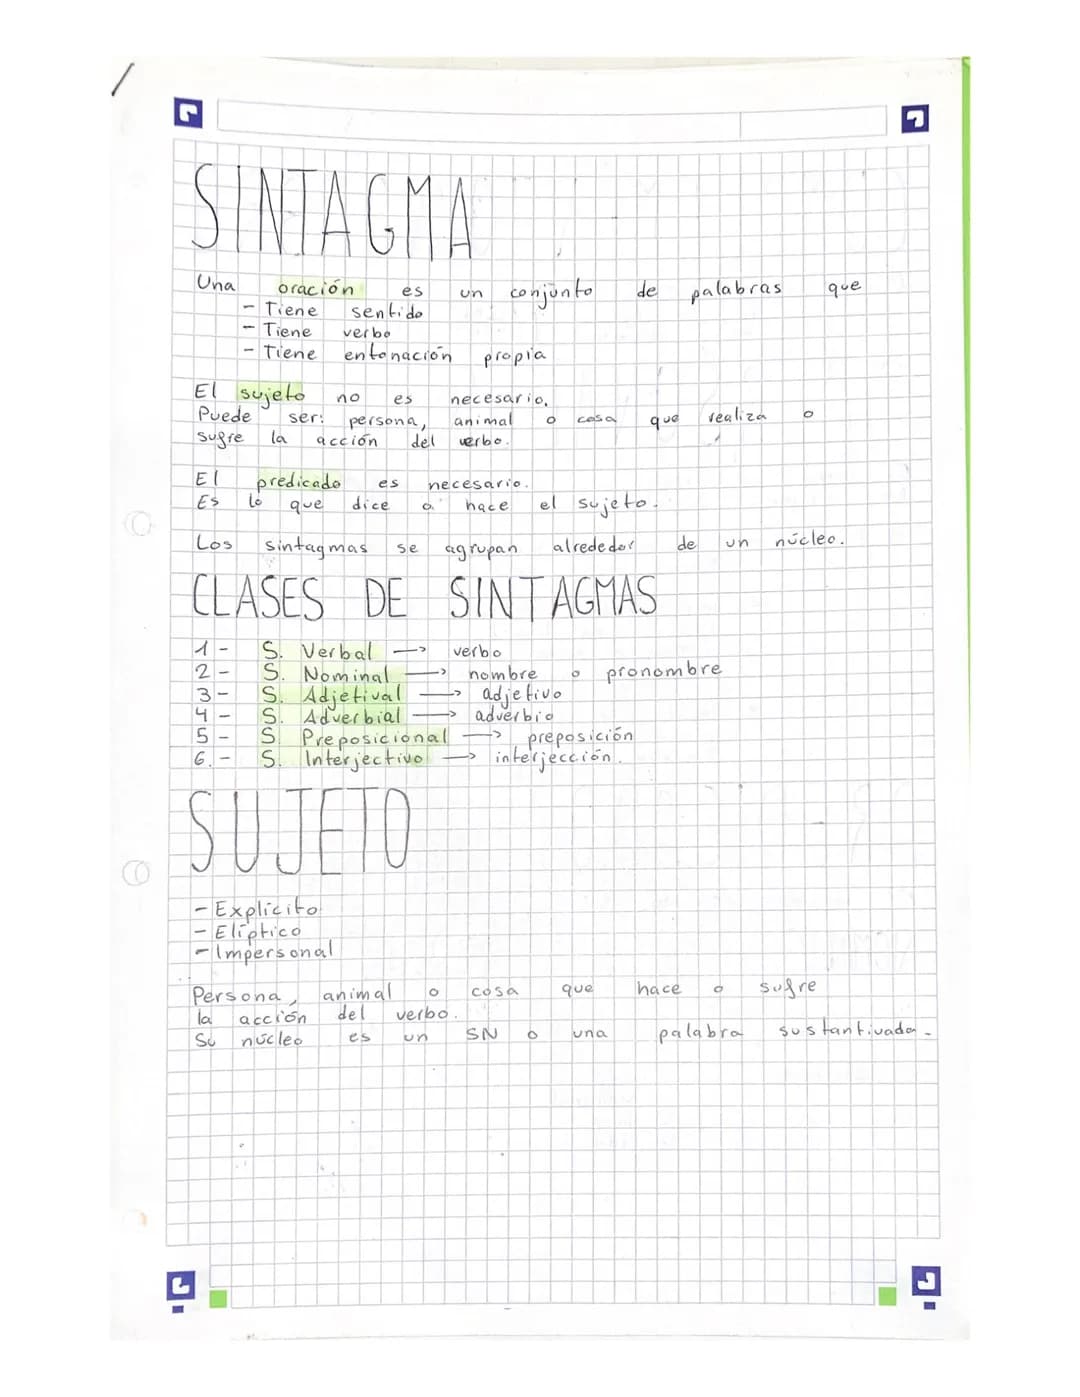 SINTAGMA
Una oración es un conjunto de palabras que
- Tiene sentido
- Tiene verbo
- Tiene entonación propia
El sujeto no es necesario.
Puede ser: persona, animal o cosa que realiza o
sufre la acción del verbo.
El predicado es necesario.
Es lo que dice o hace el sujeto.
Los sintagmas se agrupan alrededor de un núcleo.
CLASES DE SINTAGMAS
1- S. Verbal → verbo
2- S. Nominal → nombre o pronombre
3- S. Adjetival → adjetivo
4- S. Adverbial → adverbio
5- S. Preposicional → preposición
6.- S. Interjectivo → interjección.
SUJETO
- Explícito
- Elíptico
- Impersonal
Persona, animal o cosa que hace o sufre
la acción del verbo.
Su núcleo es un SN o una palabra sustantivada.